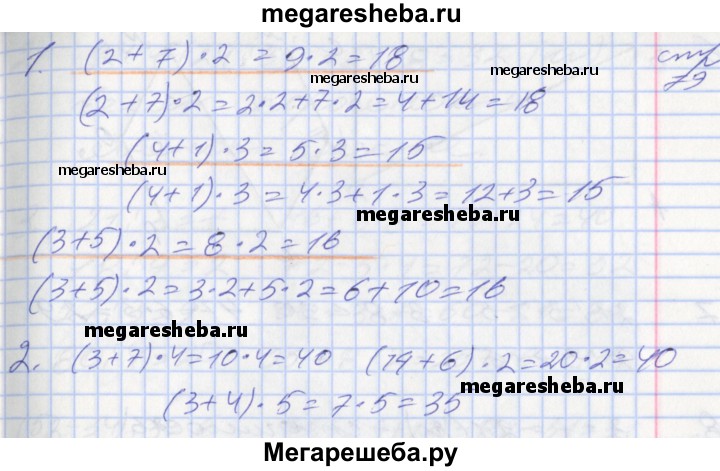 megaresheba.ru
1. (2+7)·2 = 9·2=18
стр 79
megaresheba.ru
megaresheba.ru
(2+7)·2=2·2+7·2=4+14=18
(4+1)·3=5·3=15
megaresheba.ru
(4+1)·3=4·3+1·3=12+3=15
megaresheba.ru
(3+5)·2=8·2=16
(3+5)·2=3·2+5·2=6+10=16
megaresheba.ru
2. (3+7)·4=10·4=40 (14+6)·2=20·2=40
megaresheba.ru
(3+4)·5=7·5=35
Мегарешеба.ру